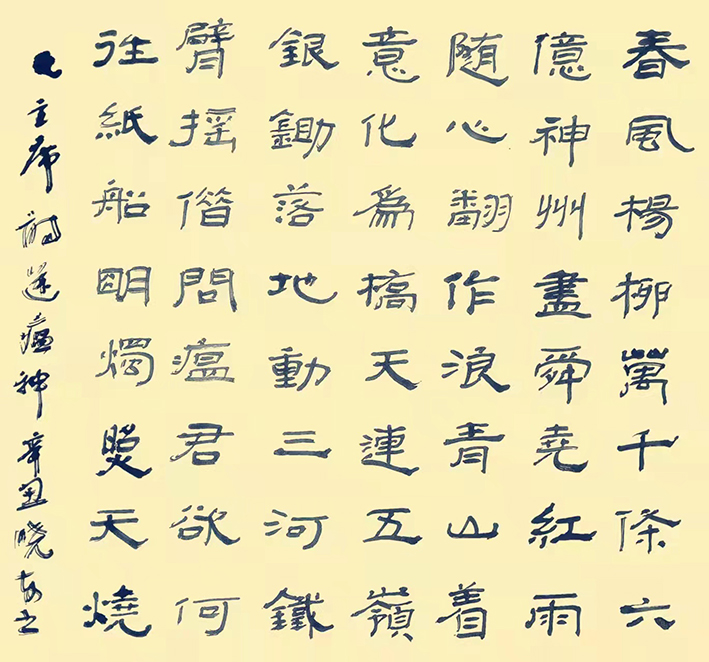 春風楊柳萬千條六
億神州盡舜堯紅雨
随心翻作浪青山着
意化為橋天連五嶺
銀鋤落地動三河鐵
臂摇借問瘟君欲何
往紙船明燭照天燒
主席詩送瘟神辛丑曉书